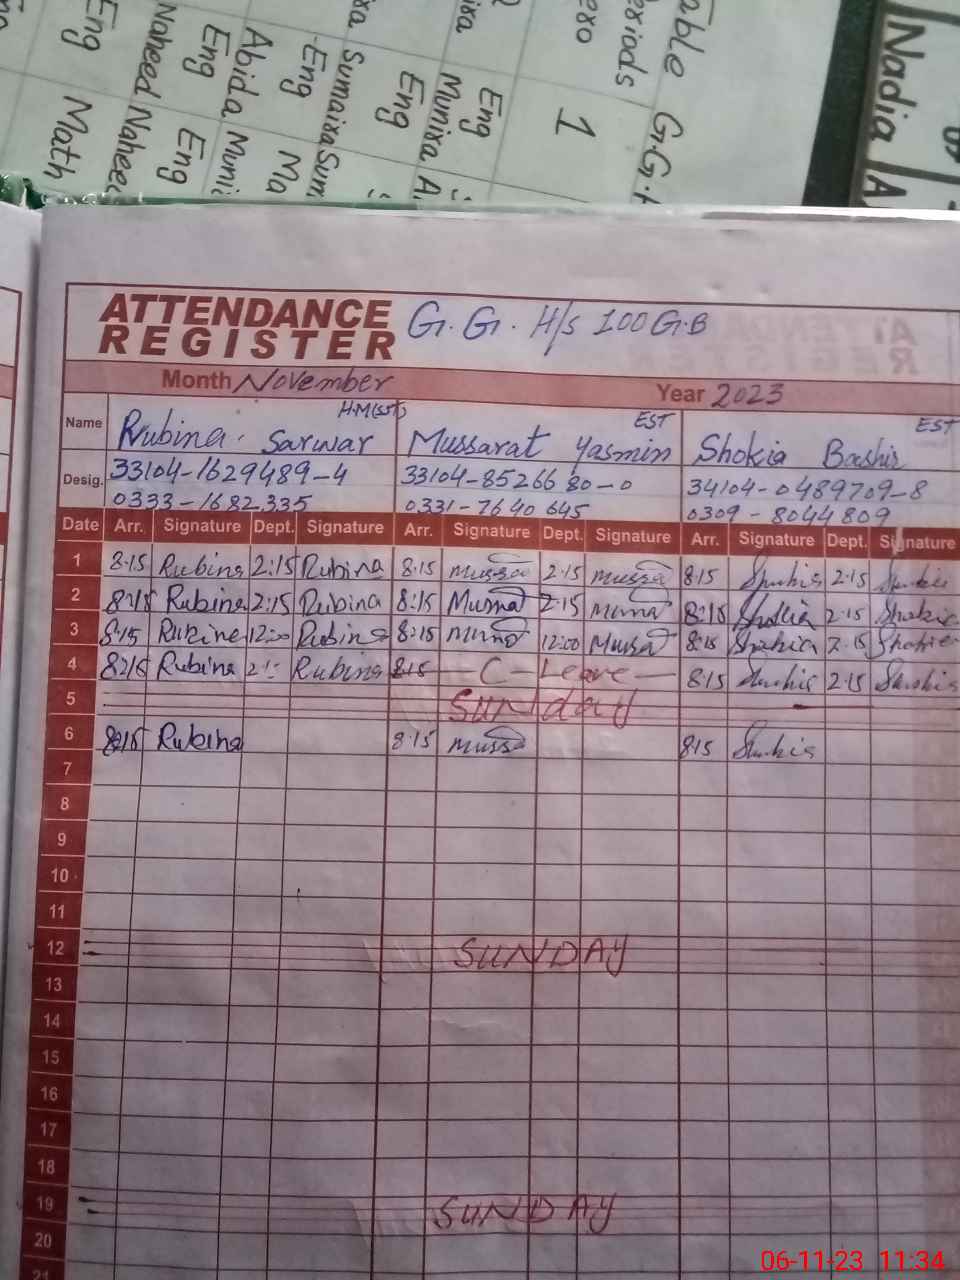 able G.G.H
esiods 1
exo
Eng Eng Eng Eng Eng
Munixa A
Sumaixa Sum
Abida Muni
Naheed Nahee
Math Ma
Nadia A
ATTENDANCE REGISTER G. G. H/S 100 G.B
Month November Year 2023
Name Rubina. Sarwar H.M(SST) Mussarat Yasmin EST Shokia Bashir EST
Desig. 33104-1629489-4 33104-8526680-0 34104-0489709-8
0333-1682335 0331-7640645 0309-8044809
Date Arr. Signature Dept. Signature Arr. Signature Dept. Signature Arr. Signature Dept. Signature
1 8.15 Rubina 2:15 Rubina 8.15 2.15 8.15 2.15
2 8:15 Rubina 2:15 Rubina 8:15 2.15 8:15 Shokia 2.15 Shokia
3 8:15 Rubina 12:00 Rubina 8:15 12:00 8:15 Shokia 2.15 Shokia
4 8:15 Rubina 2:15 Rubina 8:15 C-Leave 8:15 2.15
5 SUNday
6 8:15 Rubina 8.15 8:15
7
8
9
10
11
12 SUNDAY
13
14
15
16
17
18
19 SUNDAY
20
21
06-11-23 11:34